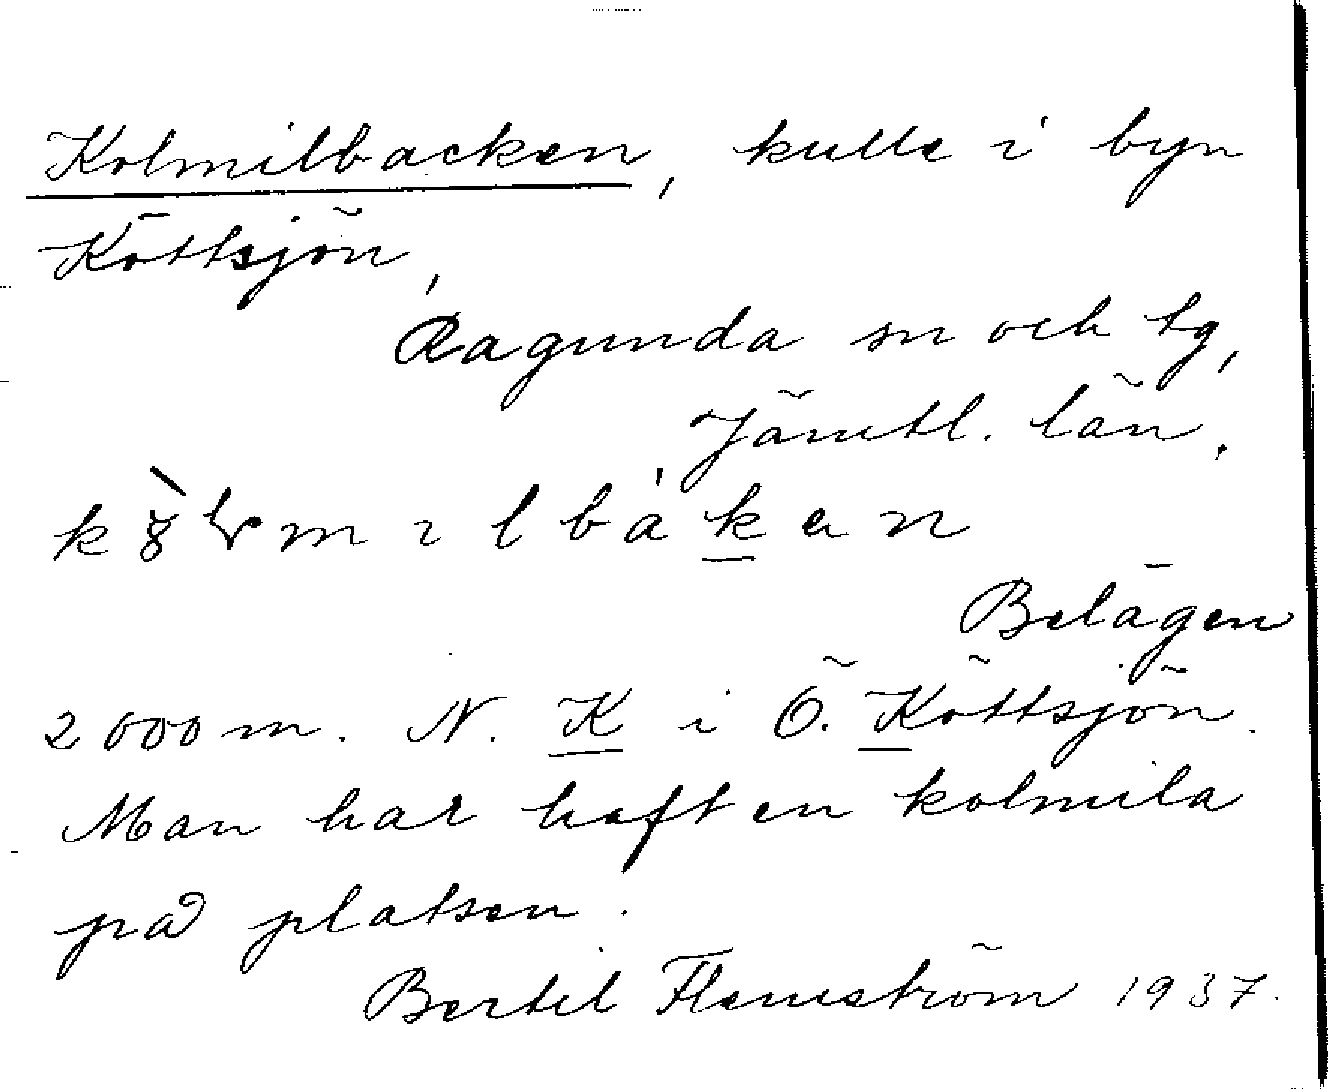 Kolmilbacken, kulle i byn
Köttsjön,
Ragunda sn och tg,
Jämtl. län.
Belägen
2000 m. N. K i Ö. Köttsjön.
Man har haft en kolmila
på platsen.
Bertil Flemström 1937.